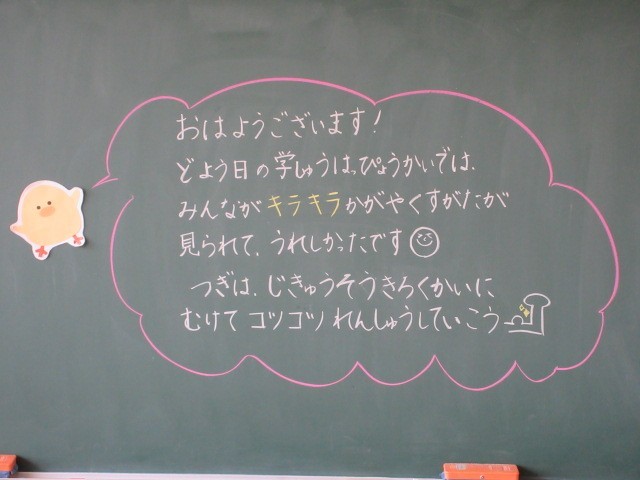 おはようございます!
どよう日の学しゅうはっぴょうかいでは、
みんながキラキラかがやくすがたが
見られて、うれしかったです
つぎは、じきゅうそうきろくかいに
むけてコツコツれんしゅうしていこう